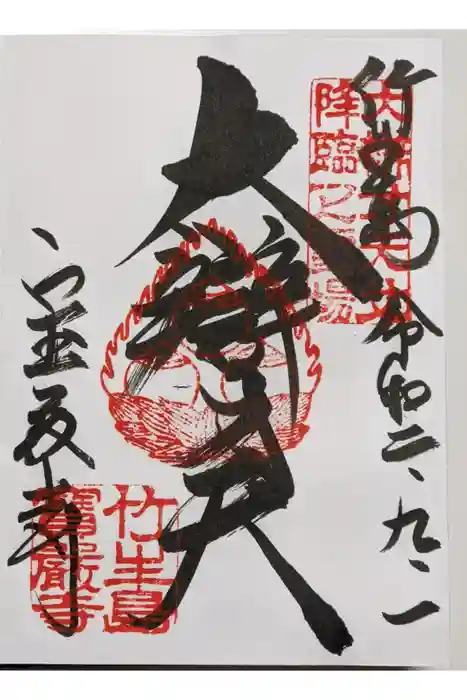 竹生島 令和二、九、一
降臨之
大辯天
宝厳寺
竹生島
寶嚴寺